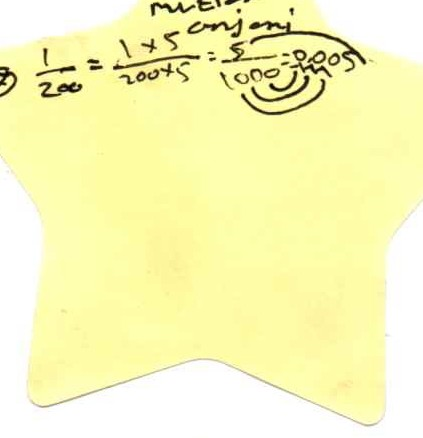 anjani
1/200 = 1×5/200×5 = 5/1000 = 0.005